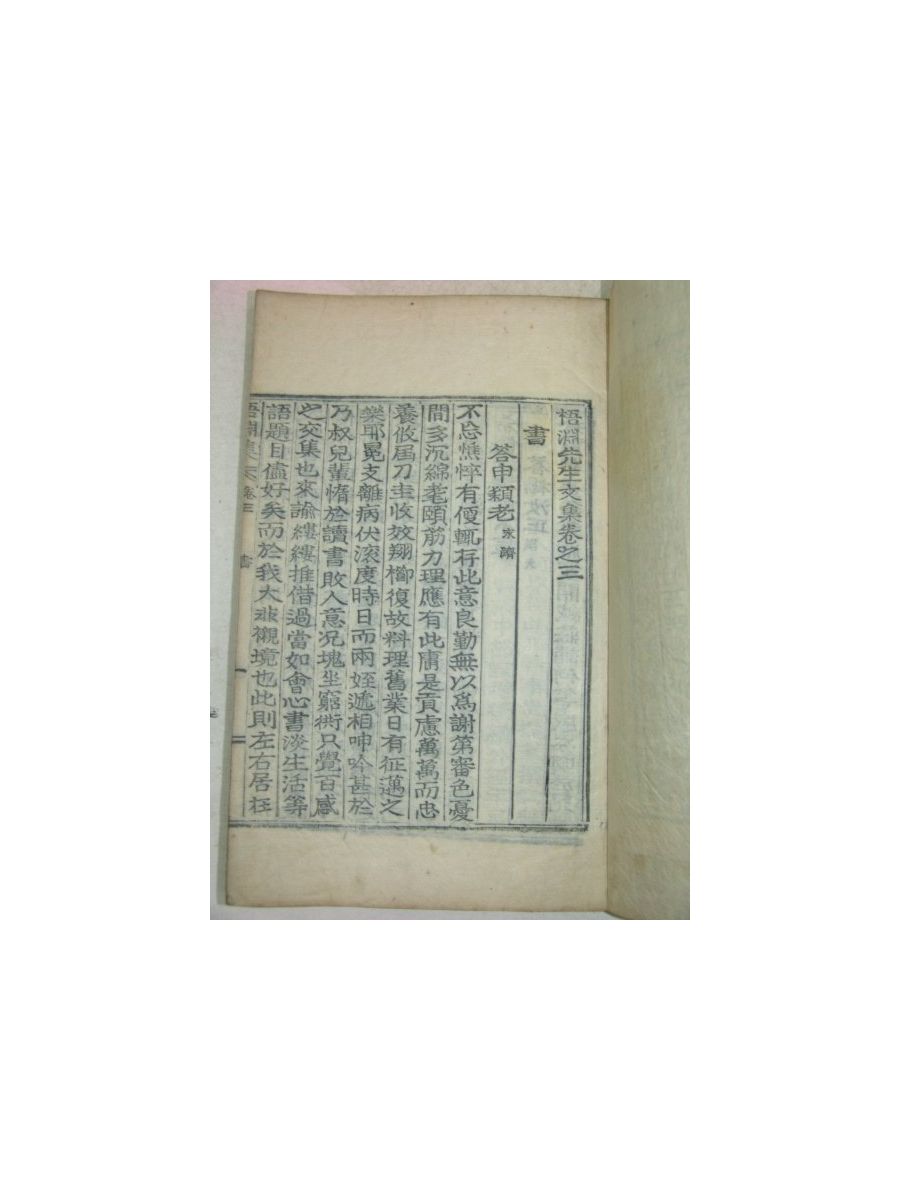 悟淵先生文集卷之三
書
答申穎老 永躋
不忘憔悴有便輒存此意良勤無以爲謝第審色憂
間多沉綿耄頤筋力理應有此庸是貢慮萬萬而忠
養攸屆刀圭收效翔櫛復故料理舊業日有征邁之
樂耶冕支離病伏滾度時日而兩姪遞相呻吟甚於
乃叔兒輩惰於讀書敗人意况塊坐窮衖只覺百感
之交集也來諭縷縷推借過當如會心書淡生活等
語題目儘好矣而於我大非襯境也此則左右居在
悟淵集 卷三 書